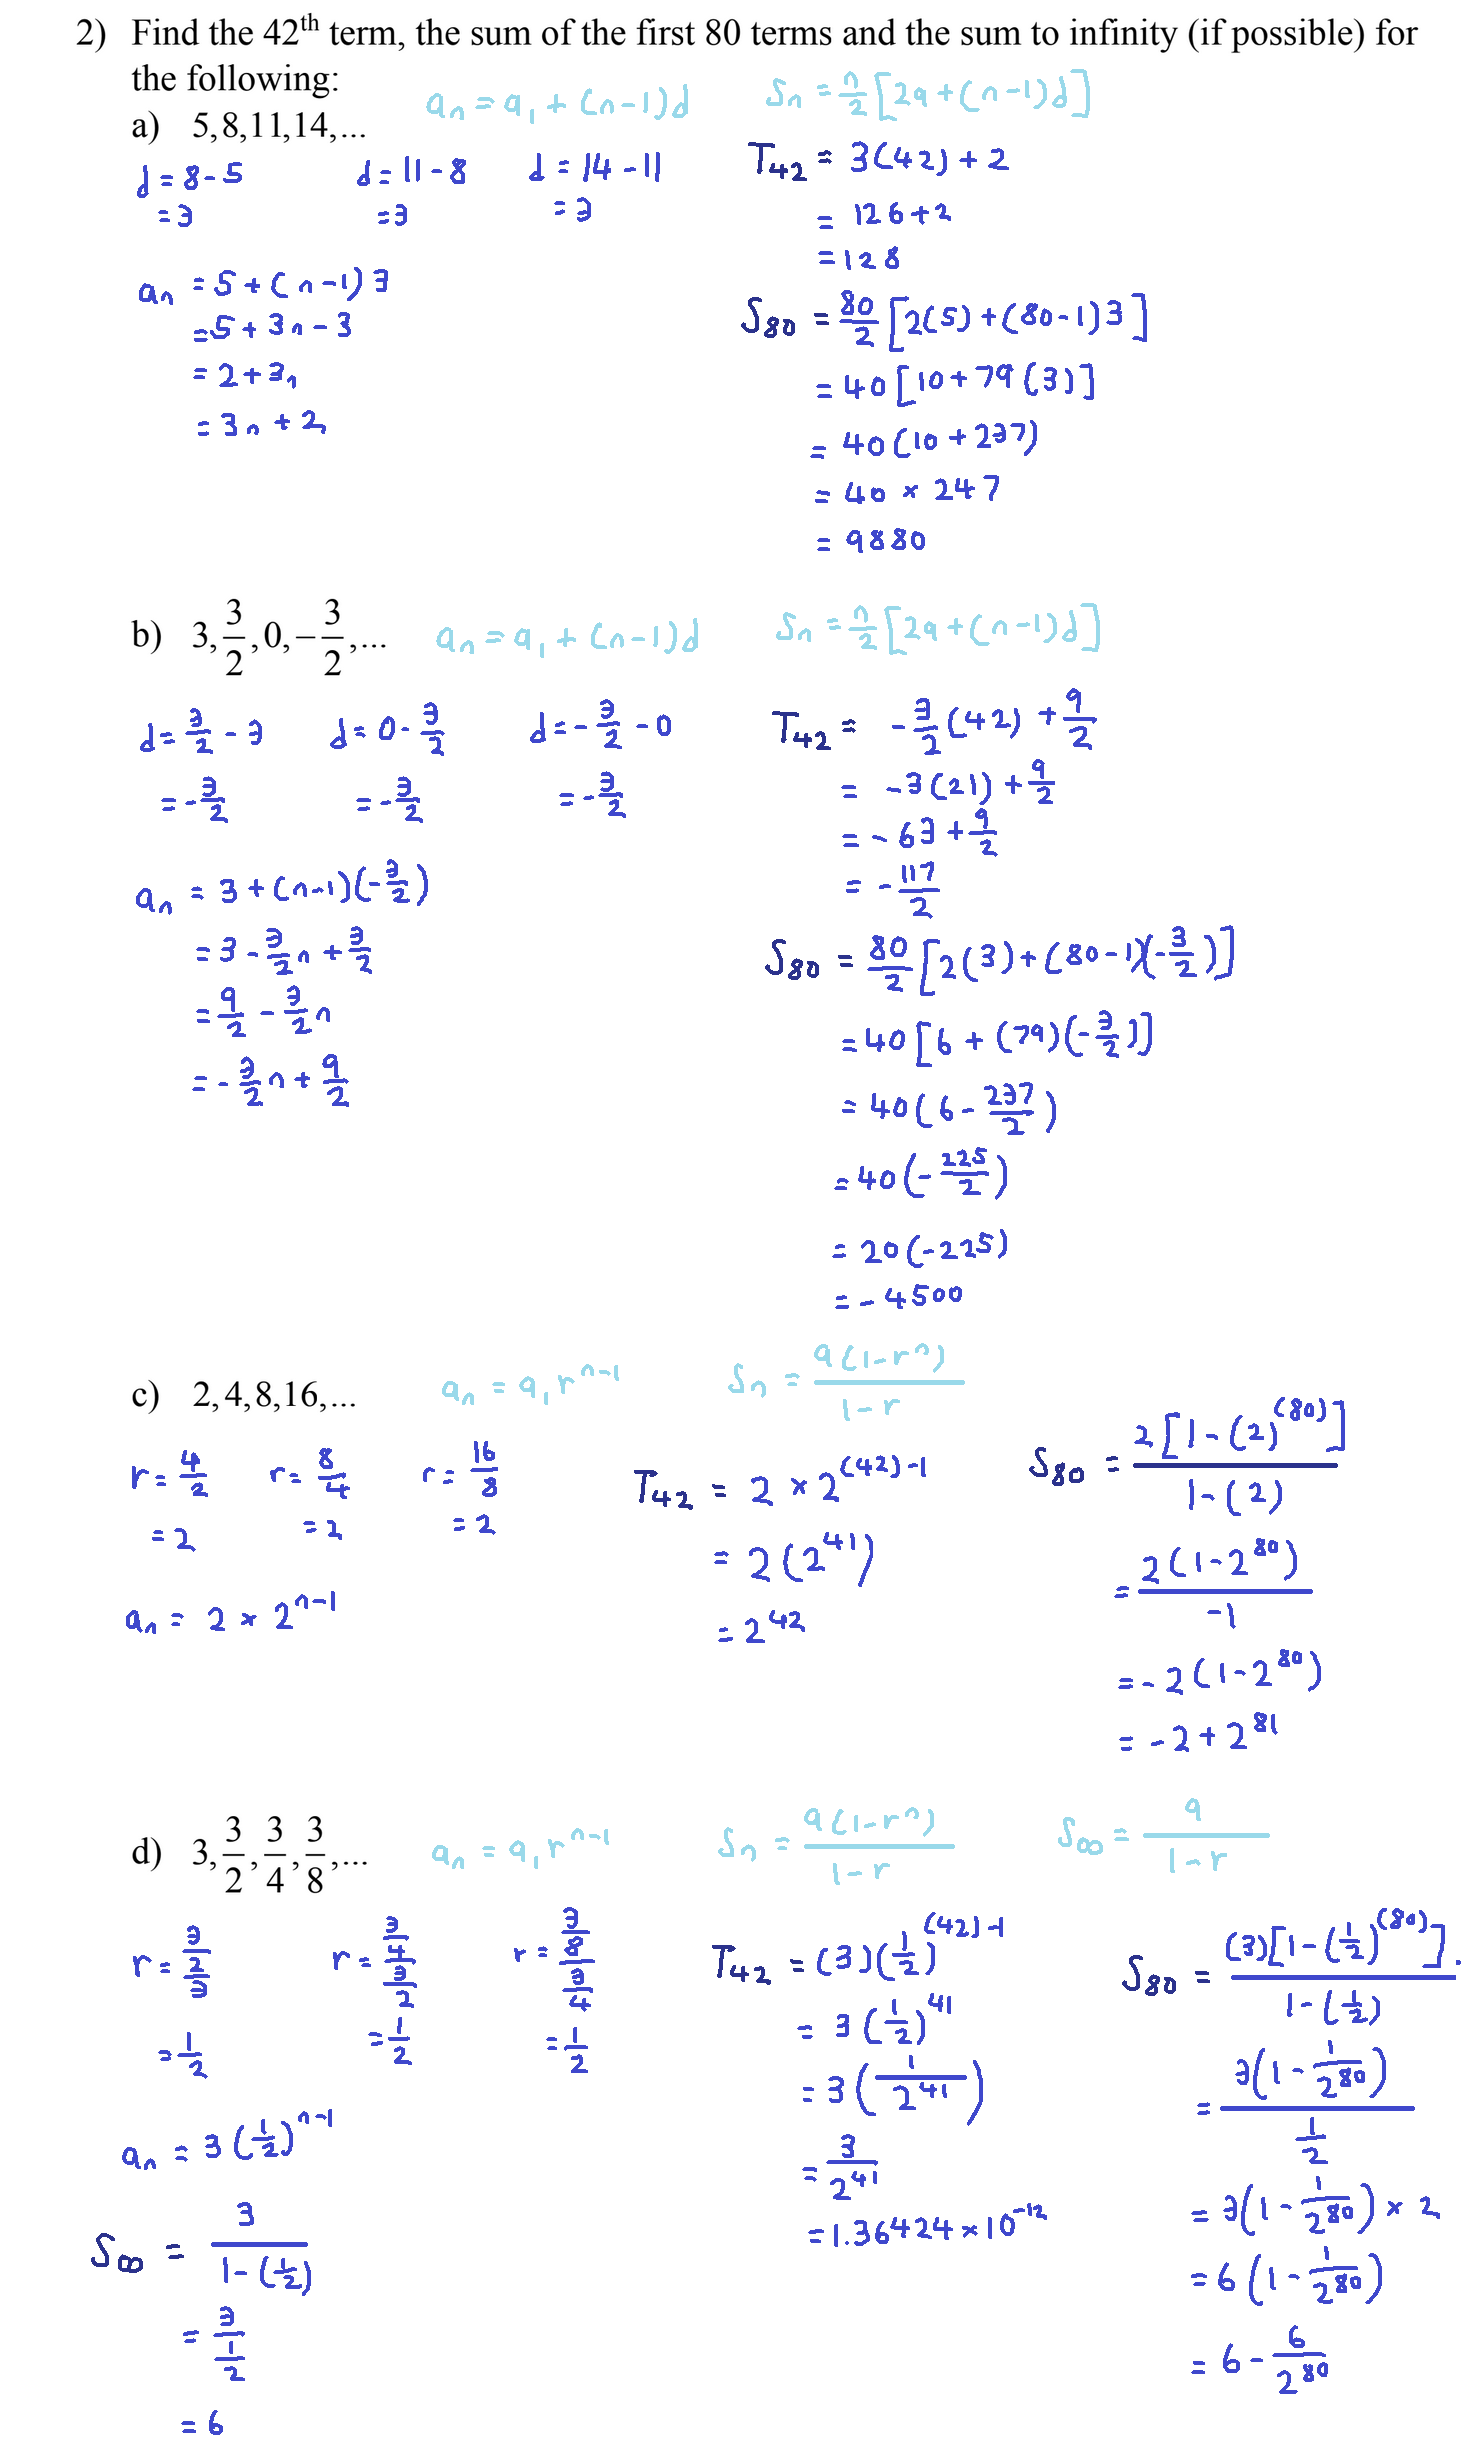 2) Find the 42th term, the sum of the first 80 terms and the sum to infinity (if possible) for
the following:
a) 5,8,11,14,...
aₙ = a₁ + (n-1)d
Sₙ = n/2 [2a + (n-1)d]
d = 8-5
= 3
d = 11-8
= 3
d = 14-11
= 3
aₙ = 5 + (n-1)3
= 5 + 3n - 3
= 2 + 3n
= 3n + 2
T₄₂ = 3(42) + 2
= 126 + 2
= 128
S₈₀ = 80/2 [2(5) + (80-1)3]
= 40[10 + 79(3)]
= 40(10 + 237)
= 40 × 247
= 9880
b) 3, 3/2, 0, -3/2, ...
aₙ = a₁ + (n-1)d
Sₙ = n/2 [2a + (n-1)d]
d = 3/2 - 3
= -3/2
d = 0 - 3/2
= -3/2
d = -3/2 - 0
= -3/2
aₙ = 3 + (n-1)(-3/2)
= 3 - 3/2 n + 3/2
= 9/2 - 3/2 n
= -3/2 n + 9/2
T₄₂ = -3/2 (42) + 9/2
= -3(21) + 9/2
= -63 + 9/2
= -117/2
S₈₀ = 80/2 [2(3) + (80-1)(-3/2)]
= 40[6 + (79)(-3/2)]
= 40(6 - 237/2)
= 40(-225/2)
= 20(-225)
= -4500
c) 2,4,8,16,...
aₙ = a₁rⁿ⁻¹
Sₙ = a(1-rⁿ)/1-r
r = 4/2
= 2
r = 8/4
= 2
r = 16/8
= 2
aₙ = 2 × 2ⁿ⁻¹
T₄₂ = 2 × 2^(42)-1
= 2(2⁴¹)
= 2⁴²
S₈₀ = 2[1-(2)^(80)]/1-(2)
= 2(1-2⁸⁰)/-1
= -2(1-2⁸⁰)
= -2 + 2⁸¹
d) 3, 3/2, 3/4, 3/8, ...
aₙ = a₁rⁿ⁻¹
Sₙ = a(1-rⁿ)/1-r
S∞ = a/1-r
r = 3/2/3
= 1/2
r = 3/4/3/2
= 1/2
r = 3/8/3/4
= 1/2
aₙ = 3(1/2)ⁿ⁻¹
S∞ = 3/1-(1/2)
= 3/1/2
= 6
T₄₂ = (3)(1/2)^(42)-1
= 3(1/2)⁴¹
= 3(1/2⁴¹)
= 3/2⁴¹
= 1.36424 × 10⁻¹²
S₈₀ = (3)[1-(1/2)^(80)]/1-(1/2)
= 3(1 - 1/2⁸⁰)/1/2
= 3(1 - 1/2⁸⁰) × 2
= 6(1 - 1/2⁸⁰)
= 6 - 6/2⁸⁰